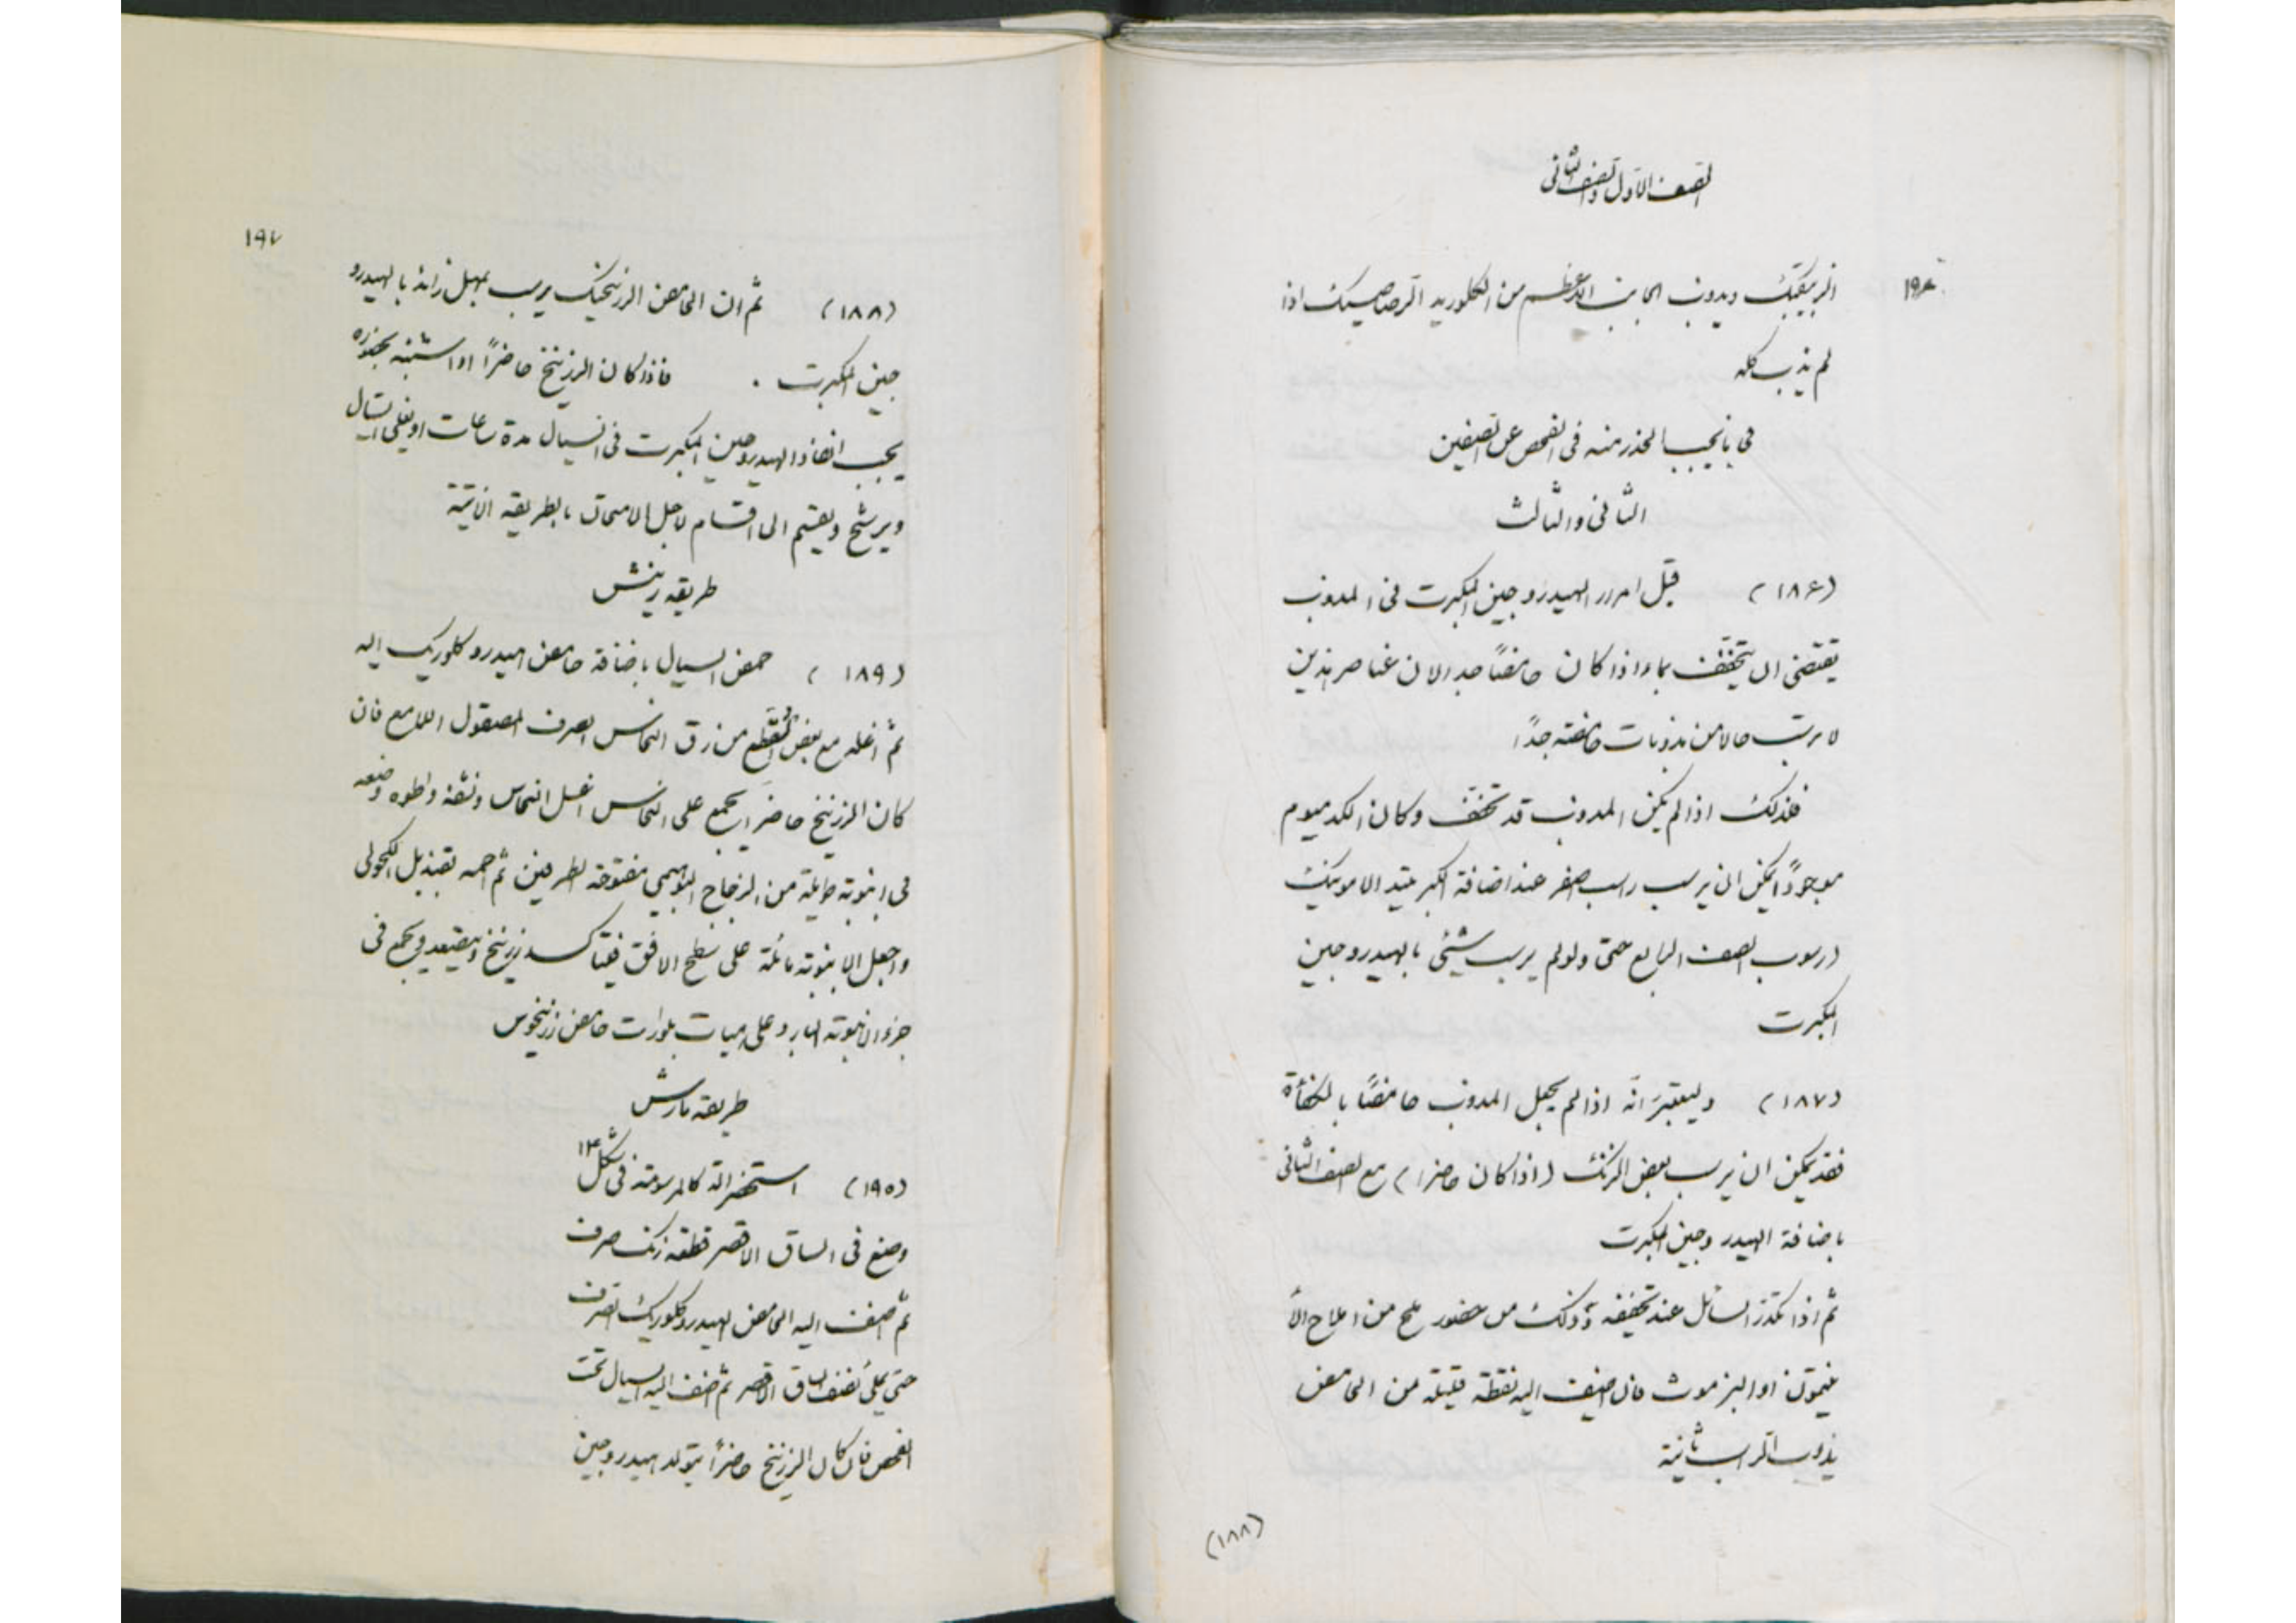 الصف الاول والصف الثانى
١٩٤
الزيبقيك ويذوب الجانب الاعظم من الكلوريد الرصاصيك اذا
لم يذب كله
فى ما يجب الحذر منه فى الفحص عن الصفين
الثانى والثالث
(١٨٦) قبل امرار الهيدروجين المكبرت فى المذوب
يقتضى ان يتخفف بماء اذا كان حامضًا جدا لان عناصر هذين
لا ترسب حالا من مذوبات حامضة جدًا
فلذلك اذا لم يكن المذوب قد تخفف وكان الكدميوم
موجودًا يمكن ان يرسب راسب اصفر عند اضافة الكبريتيد الامونيك
(رسوب الصف الرابع حتى ولو لم يرسب شيئ بالهيدروجين
المكبرت
(١٨٧) وليعتبر انه اذا لم يجعل المذوب حامضًا بالكفأة
فقد يمكن ان يرسب بعض الزنك (اذا كان حاضرا) مع الصف الثانى
باضافة الهيدروجين المكبرت
ثم اذا تكدر السائل عند تخفيفه وذلك من حضور ملح من املاح الأ
نتيمون او البزموث فان اضيف اليه نقطة قليلة من الحامض
يذوب الراسب ثانية
(١٨٨)
١٩٧
(١٨٨) ثم ان الحامض الزرنيخيك يرسب بمهل زائد بالهيدرو
جين المكبرت . فاذا كان الزرنيخ حاضرًا او اشتبه بحضوره
يجب انفاذ الهيدروجين المكبرت فى السيال مدة ساعات او يغلى السيال
ويرشح ويقسم الى اقسام لاجل الامتحان بالطريقة الاتية
طريقه رينش
(١٨٩) حمض السيال باضافة حامض هيدروكلوريك اليه
ثم اغله مع بعض القطع من رق النحاس الصرف المصقول اللامع فان
كان الزرنيخ حاضرا يجمع على النحاس اغسل النحاس ونشفه واطوه وضعه
فى انبوبة طويلة من الزجاج البوهيمى مفتوحة الطرفين ثم احمه بقنديل الكحولى
واجعل الانبوبة مائلة على سطح الافق فيتاكسد زرنيخ ويتصعد ويجمع فى
جزء الانبوبة البارد على هيات بلورات حامض زرنيخوس
طريقه مارش
(١٩٥) استحضر الة كالمرسومة فى شكل ١٣
وضع فى الساق الاقصر قطعة زنك صرف
ثم اضف اليه الحامض الهيدروكلوريك الصرف
حتى يملئ نصف الساق الاقصر ثم اضف اليه السيال تحت
الفحص فان كان الزرنيخ حاضرًا يتولد هيدروجين